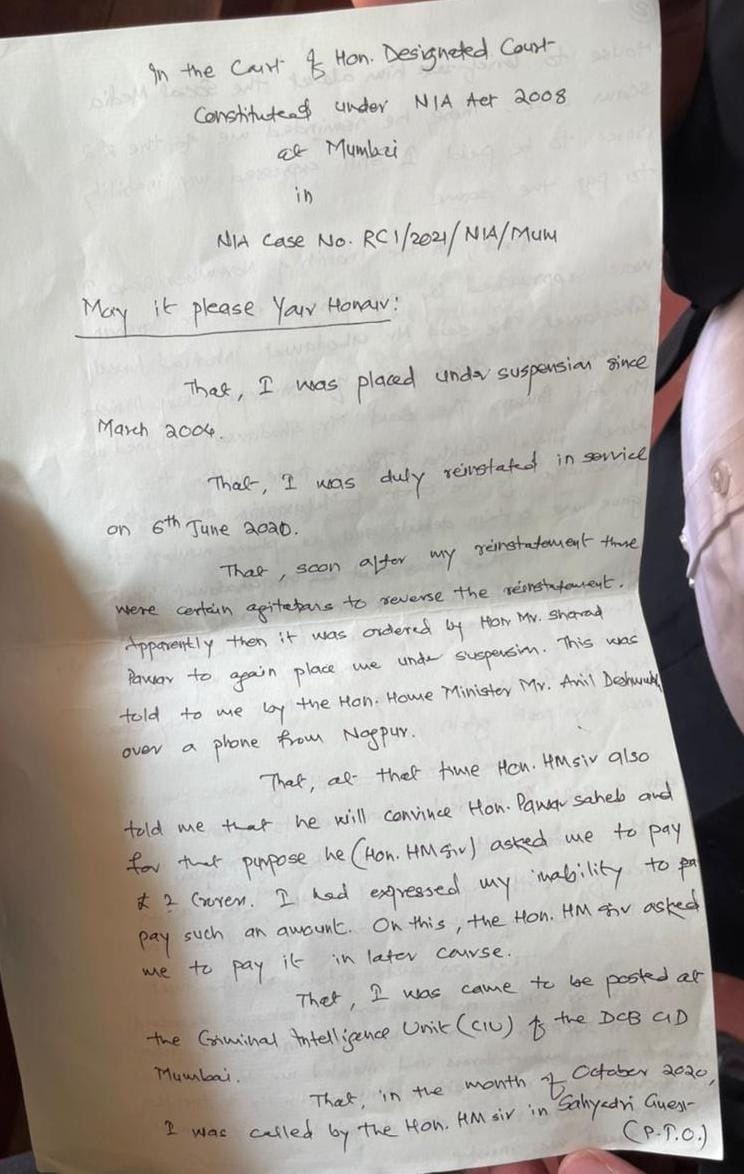 In the Court of Hon. Designated Court
Constituted under NIA Act 2008
at Mumbai
in
NIA Case No. RC1/2021/NIA/Mum
May it please Your Honour:
That, I was placed under suspension since
March 2004.
That, I was duly reinstated in service
on 6th June 2020.
That, soon after my reinstatement there
were certain agitations to reverse the reinstatement.
Apparently then it was ordered by Hon Mr. Sharad
Pawar to again place me under suspension. This was
told to me by the Hon. Home Minister Mr. Anil Deshmukh
over a phone from Nagpur.
That, at that time Hon. HM sir also
told me that he will convince Hon. Pawar saheb and
for that purpose he (Hon. HM sir) asked me to pay
₹ 2 Crores. I had expressed my inability to pa
pay such an amount. On this, the Hon. HM sir asked
me to pay it in later course.
That, I was came to be posted at
the Criminal Intelligence Unit (CIU) of the DCB CID
Mumbai.
That, in the month of October 2020,
I was called by the Hon. HM sir in Sahyadri Guest-
(P.T.O.)